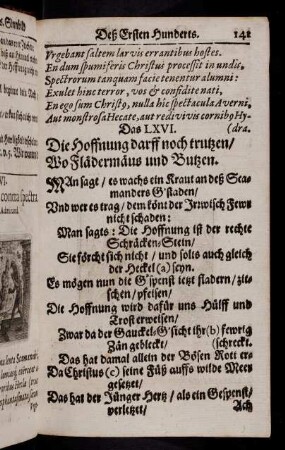 Deß Ersten Hunderts. 141
Vrgebant saltem larvis errantibus hostes.
En dum spumiferis Christus processit in undis,
Spectrorum tanquam facie tenentur alumni:
Exulet hinc terror, vos & confidite nati,
En ego sum Christ9, nulla hic spectacula Averni,
Aut monstrosa Hecate, aut redivivus cornib9 Hy-
Das LXVI. (dra.
Die Hoffnung darff noch trutzen/
Wo Flädermäus und Butzen.
MAn sagt/ es wachs ein Kraut an deß Sca-
manders G'staden/
Vnd wer es trag/ dem könt der Irrwisch Fewr
nicht schaden:
Man sagts: Die Hoffnung ist der rechte
Schräcken-Stein/
Sie förcht sich nicht/ und solts auch gleich
der Heckel (a) seyn.
Es mögen nun die G'spenst ietzt fladern/ zit-
schen/ pfeisen/
Die Hoffnung wird dafür uns Hülff und
Trost erweisen/
Zwar da der Gauckel-G'sicht ihr (b) fewrig
Zän gebleckt/ (schreckt.
Das hat damal allein der Bösen Rott er-
Da Christus (c) seine Füß auffs wilde Meer
gesetzet/
Das hat der Jünger Hertz/ als ein Gespenst/
verletzet/
Ach